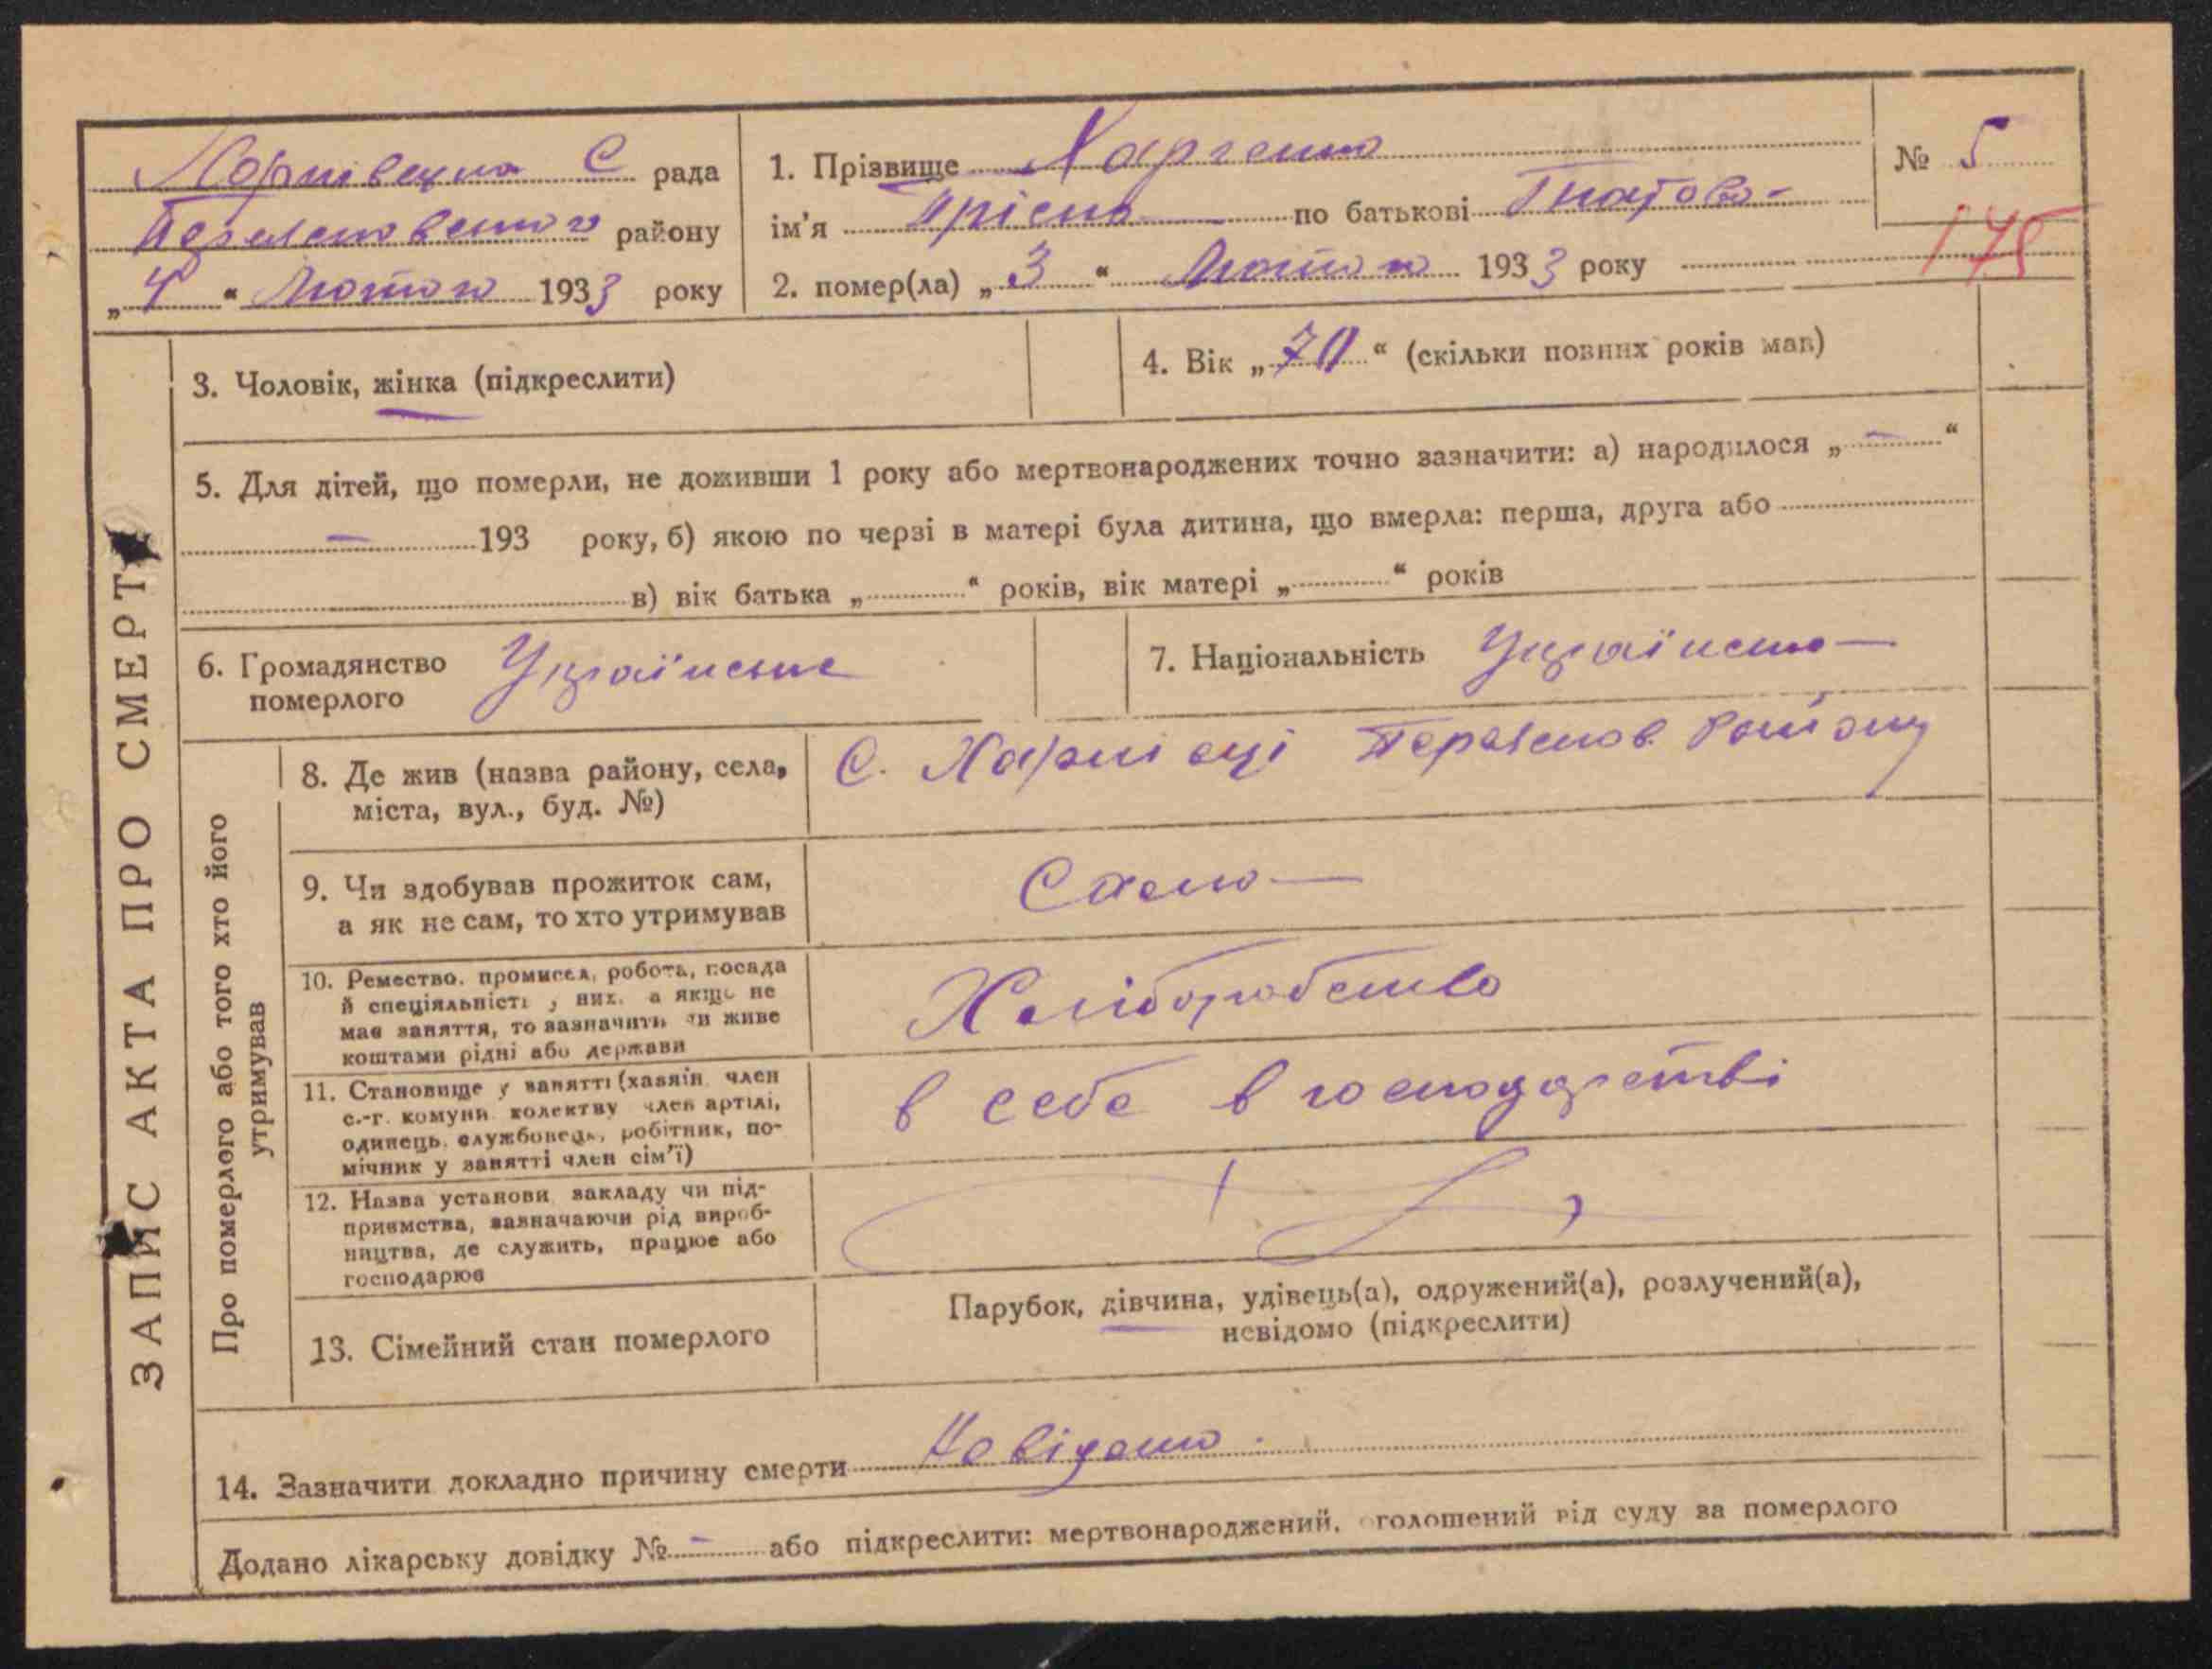 Харківецька С рада
Переяславського району
„4" Лютого 1933 року
1. Прізвище Харченко
ім'я Орісно по батькові Гнатова
2. помер(ла) „3" Лютого 1933 року
№ 5
175
ЗАПИС АКТА ПРО СМЕРТ
3. Чоловік, жінка (підкреслити)
4. Вік „70" (скільки повних років мав)
5. Для дітей, що померли, не доживши 1 року або мертвонароджених точно зазначити: а) народилося „ – "
– 193 року, б) якою по черзі в матері була дитина, що вмерла: перша, друга або
в) вік батька „ " років, вік матері „ " років
6. Громадянство померлого Українське
7. Національність Українська
Про померлого або того хто його утримував
8. Де жив (назва району, села, міста, вул., буд. №)
С. Харківці Переяслов. Району
9. Чи здобував прожиток сам, а як не сам, то хто утримував
Сама
10. Ремество, промисел, робота, посада й спеціяльність у них, а якщо не має заняття, то зазначить чи живе коштами рідні або держави
Хліборобство
11. Становище у занятті (хазяїн, член с.-г. комуни, колективу, член артілі, одинець, службовець, робітник, помічник у занятті член сім'ї)
в себе в господарстві
12. Назва установи, закладу чи підприємства, зазначаючи рід виробництва, де служить, працює або господарює
13. Сімейний стан померлого
Парубок, дівчина, удівець(а), одружений(а), розлучений(а),
невідомо (підкреслити)
14. Зазначити докладно причину смерти Невідомо.
Додано лікарську довідку № – або підкреслити: мертвонароджений, оголошений від суду за померлого